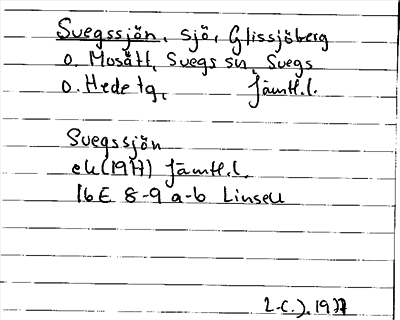 Svegssjön, sjö, Glissjöberg
o. Mosätt, Svegs sn, Svegs
o. Hede tg, Jämtl.l.
Svegssjön
ek (1977) Jämtl.l.
16E 8-9 a-b Linsell
L-C.J. 1977